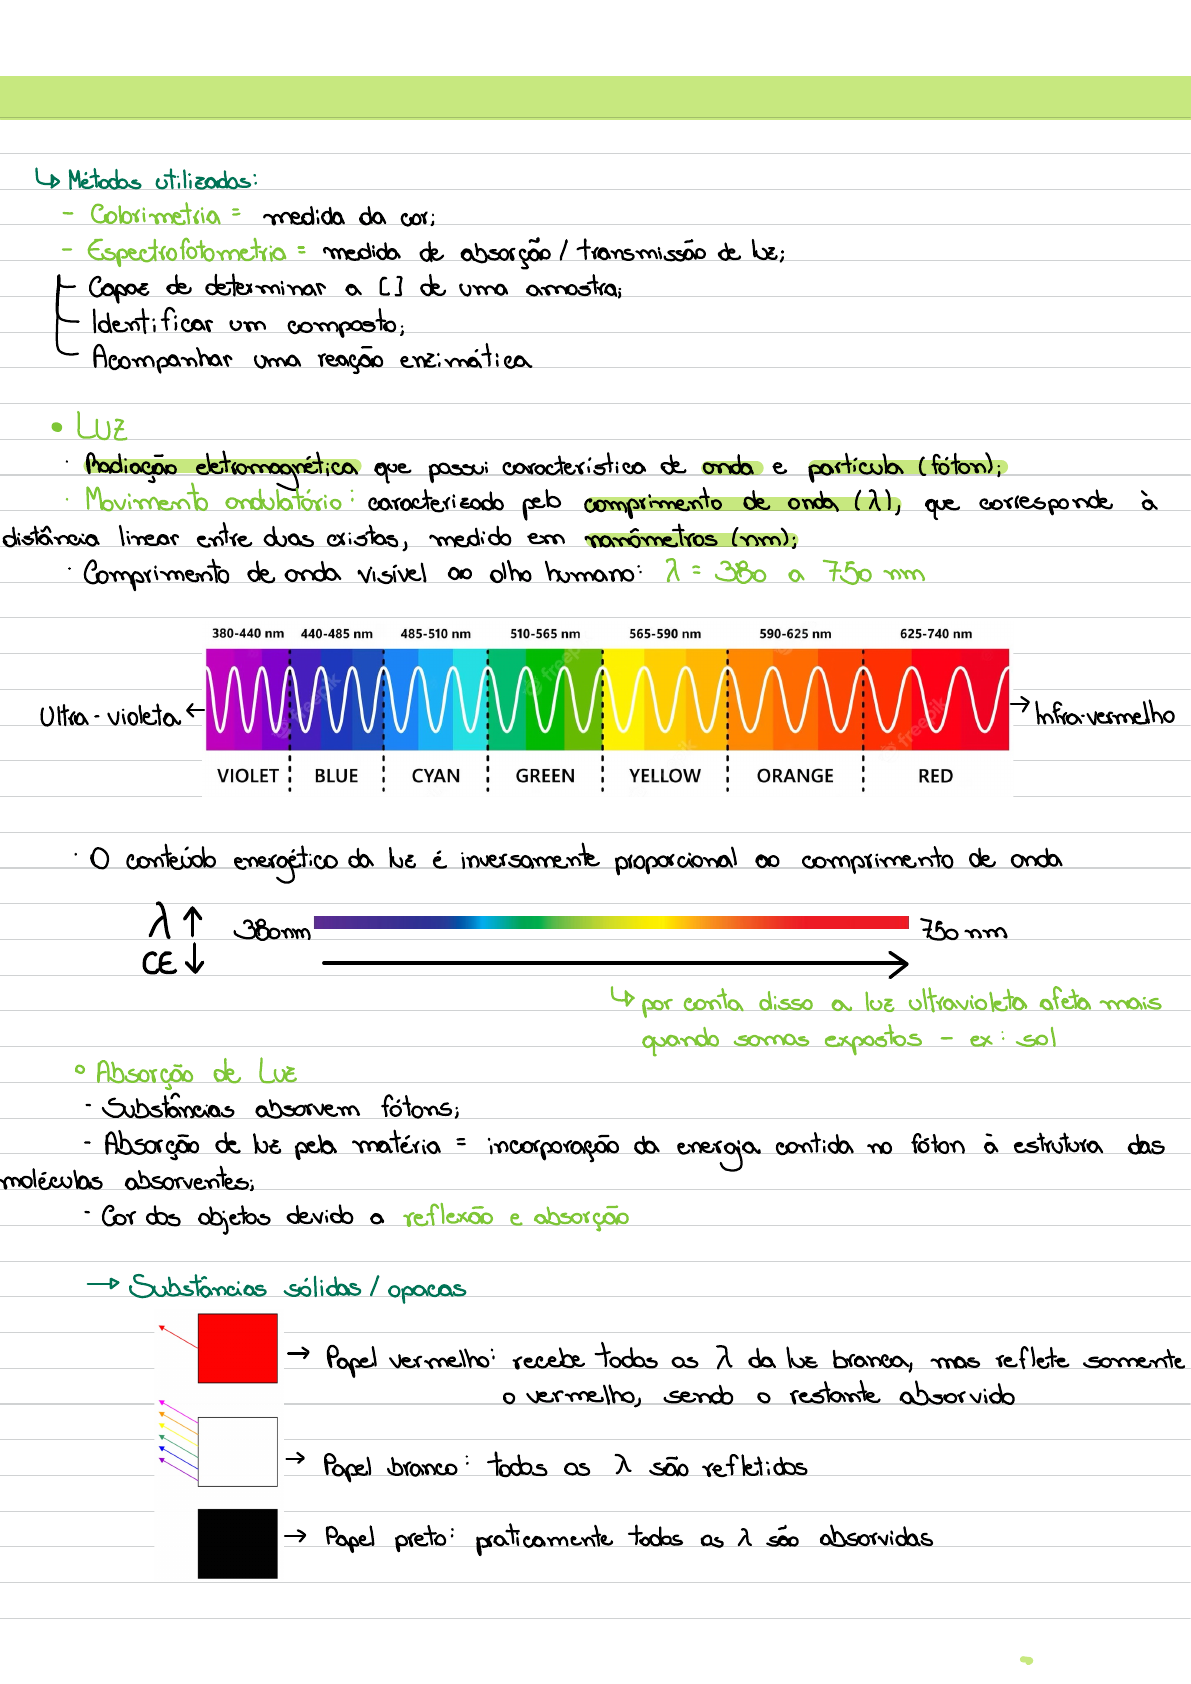 ↳ Métodos utilizados:
- Colorimetria = medida da cor;
- Espectrofotometria = medida de absorção / transmissão de luz;
- Capaz de determinar a [] de uma amostra;
- Identificar um composto;
- Acompanhar uma reação enzimática
• LUZ
· Radiação eletromagnética que possui característica de onda e partícula (fóton);
· Movimento ondulatório: caracterizado pelo comprimento de onda (λ), que corresponde à
distância linear entre duas cristas, medido em nanômetros (nm);
· Comprimento de onda visível ao olho humano: λ = 380 a 750 nm
380-440 nm 440-485 nm 485-510 nm 510-565 nm 565-590 nm 590-625 nm 625-740 nm
Ultra-violeta ← → Infra-vermelho
VIOLET BLUE CYAN GREEN YELLOW ORANGE RED
· O conteúdo energético da luz é inversamente proporcional ao comprimento de onda
λ ↑ 380nm 750 nm
CE ↓
↳ por conta disso a luz ultravioleta afeta mais
quando somos expostos - ex: sol
° Absorção de Luz
- Substâncias absorvem fótons;
- Absorção de luz pela matéria = incorporação da energia contida no fóton à estrutura das
moléculas absorventes;
- Cor dos objetos devido a reflexão e absorção
→ Substâncias sólidas / opacas
→ Papel vermelho: recebe todos os λ da luz branca, mas reflete somente
o vermelho, sendo o restante absorvido
→ Papel branco: todos os λ são refletidos
→ Papel preto: praticamente todos os λ são absorvidas